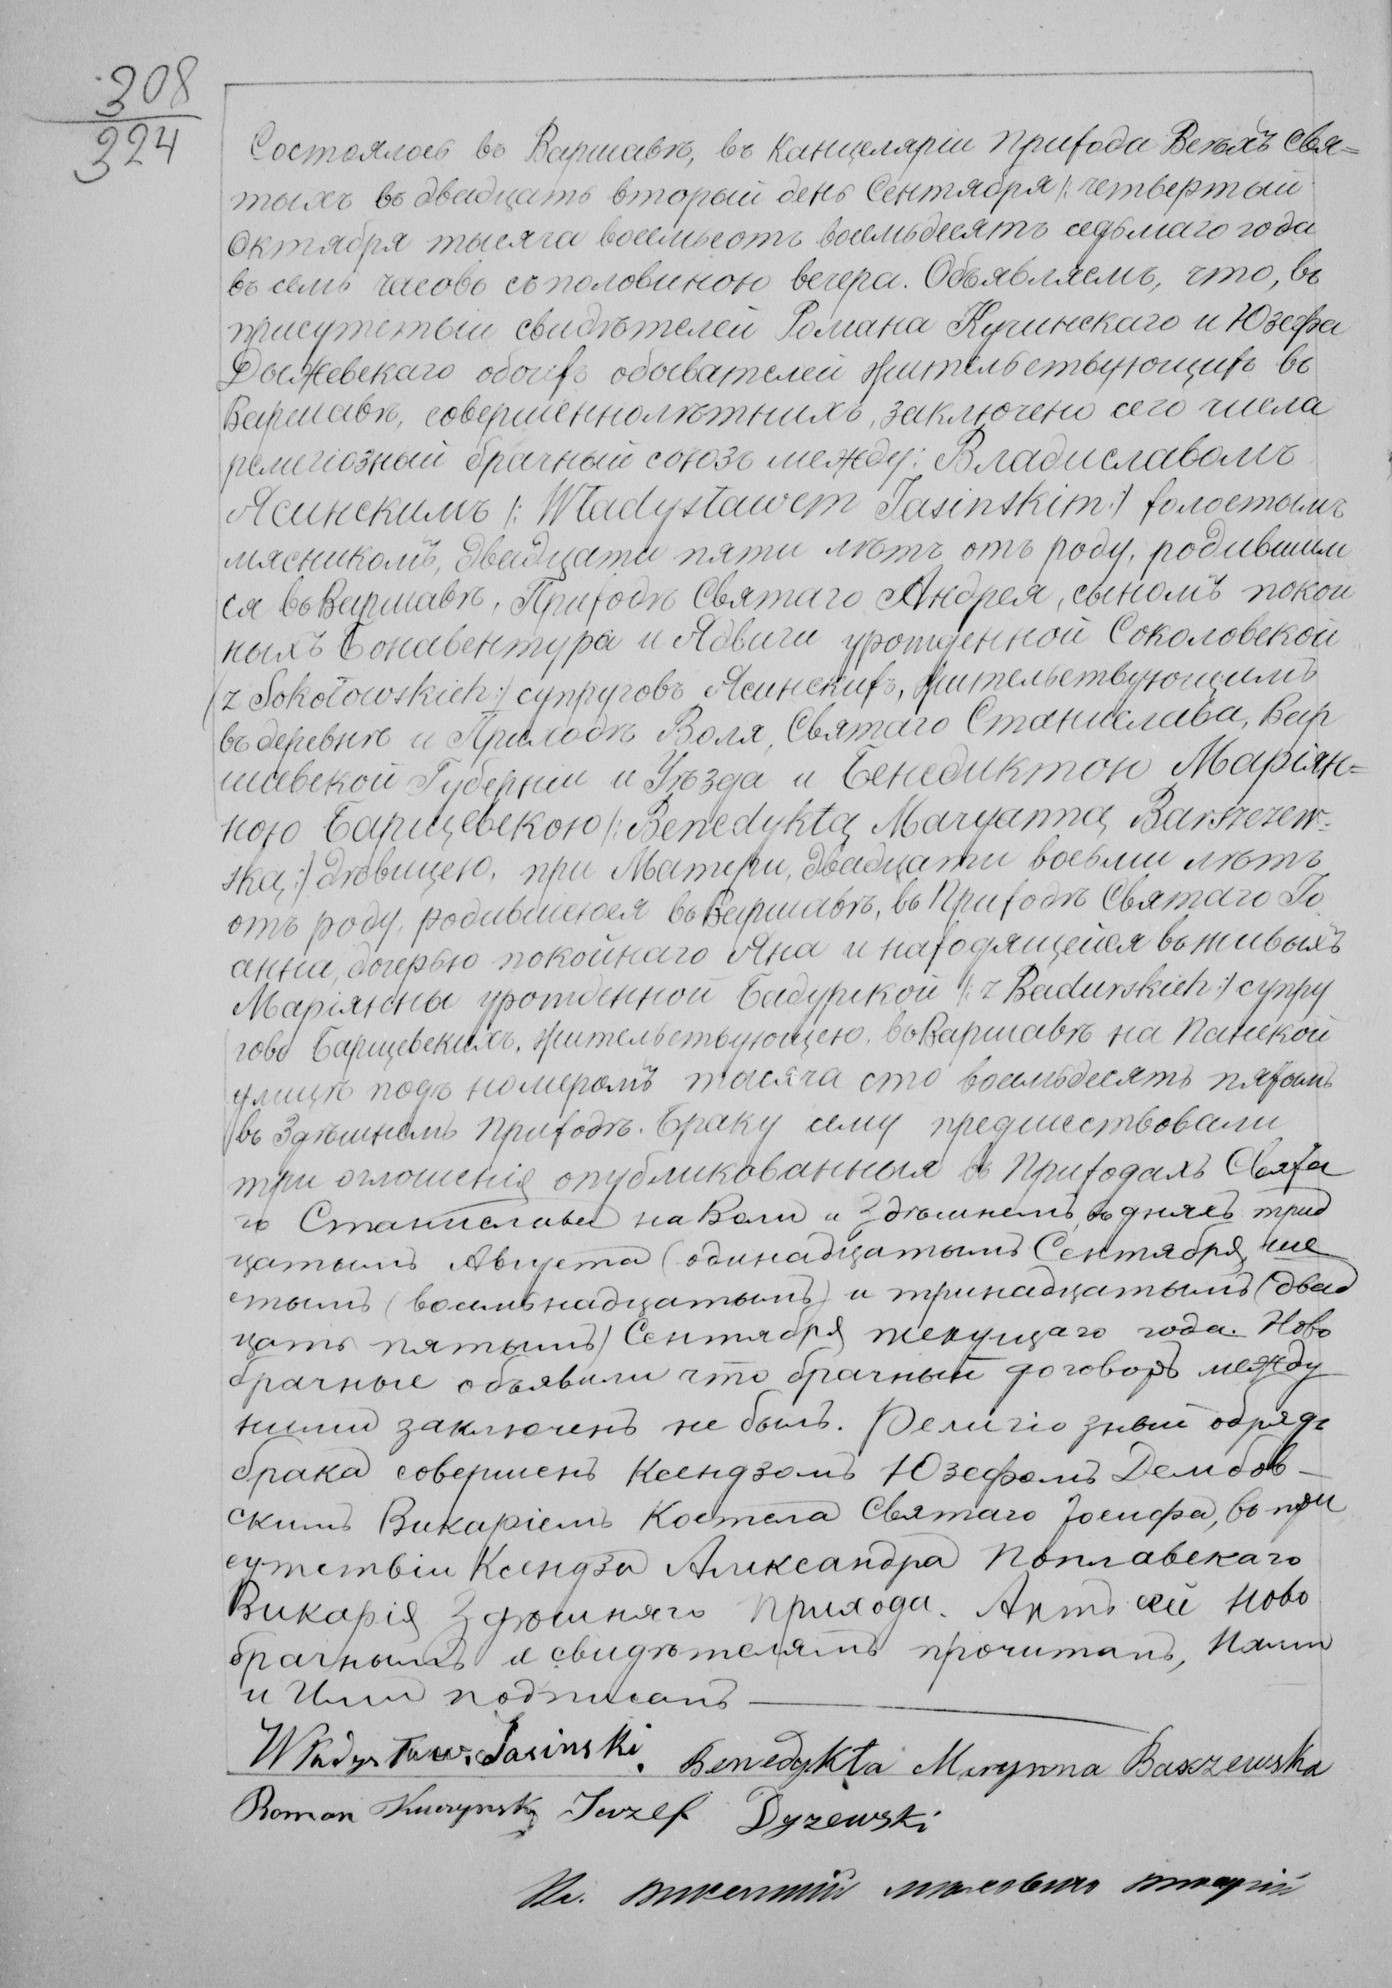 308
324
Состоялось въ Варшавѣ, въ канцеляріи Прихода Всѣхъ Свя=
тыхъ въ двадцать вторый день Сентября /: четвертый
Октября тысяча восемьсотъ восемьдесятъ седьмаго года
въ семь часовъ съ половиною вечера. Объявляемъ, что, въ
присутствіи свидѣтелей Романа Кучинскаго и Юзефа
Дыжевскаго обоихъ обывателей жительствующихъ въ
Варшавѣ, совершеннолѣтнихъ, заключено сего числа
религіозный брачный союзъ между: Владиславомъ
Ясинскимъ /: Władysławem Jasinskim :/ холостымъ
мясникомъ, двадцати пяти лѣтъ отъ роду, родившим
ся въ Варшавѣ, Приходѣ Святаго Андрея, сыномъ покой
ныхъ Бонавентура и Ядвиги урожденной Соколовской
(z Sokołowskich :/ супруговъ Ясинскихъ, жительствующимъ
въ деревнѣ и Приходѣ Воля, Святаго Станислава, Вар
шавской Губерніи и Уѣзда и Бенедиктою Маріян=
ною Барщевскою /: Benedyktą Maryanną Barszczew=
ską :/ дѣвицею, при Матери, двадцати восьми лѣтъ
отъ роду, родившеюся въ Варшавѣ, въ Приходѣ Святаго Іо
анна, дочерью покойнаго Яна и находящейся въ живыхъ
Маріянны урожденной Бадурской /: z Badurskich :/ супру
говъ Барщевскихъ, жительствующею въ Варшавѣ на Панской
улицѣ подъ номеромъ тысяча сто восемьдесятъ пятымъ
въ Здѣшнемъ Приходѣ. Браку сему предшествовали
три оглошенія опубликованныя въ Приходахъ Свята
го Станислава на Воли и Здѣшнемъ, въ дняхъ трид
цатымъ Августа (одинадцатымъ Сентября, ше
стымъ (восемьнадцатымъ) и тринадцатымъ (двад
цать пятымъ) Сентября текущаго года. Ново
брачные объявили что брачный договоръ между
ними заключенъ не былъ. Религіозный обрядъ
брака совершенъ Ксендзомъ Юзефомъ Дембов-
скимъ Викаріемъ Костела Святаго Іосифа, въ при
сутствіи Ксендза Александра Поплавскаго
Викарія Здѣшняго Прихода. Актъ сей Ново
брачнымъ и свидѣтелямъ прочитанъ, Нами
и Ими подписанъ
Władysław Jasinski. Benedykta Marynna Baszewska
Roman Kuczynski Jozef Dyzewski